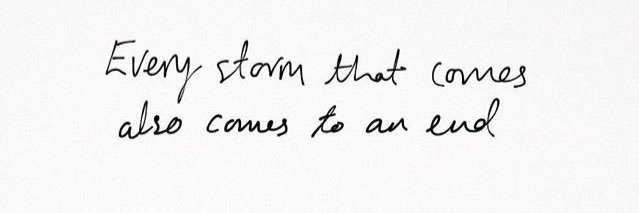 Every storm that comes
also comes to an end